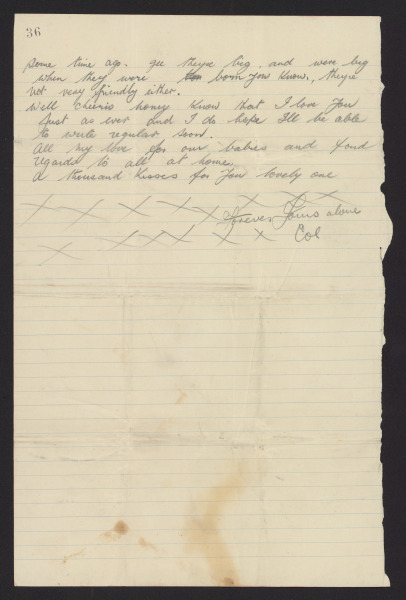 36
some time ago. gee theyre big. and were big
when they were born you know, they're
not very friendly either.
Well cheerio honey know that I love you
just as ever and I do hope I'll be able
to write regular soon.
All my love for our babies and fond
regards to all at home.
A thousand kisses for you lovely one
X X X X X X X X X
Forever Yours alone
X X X X X X Col